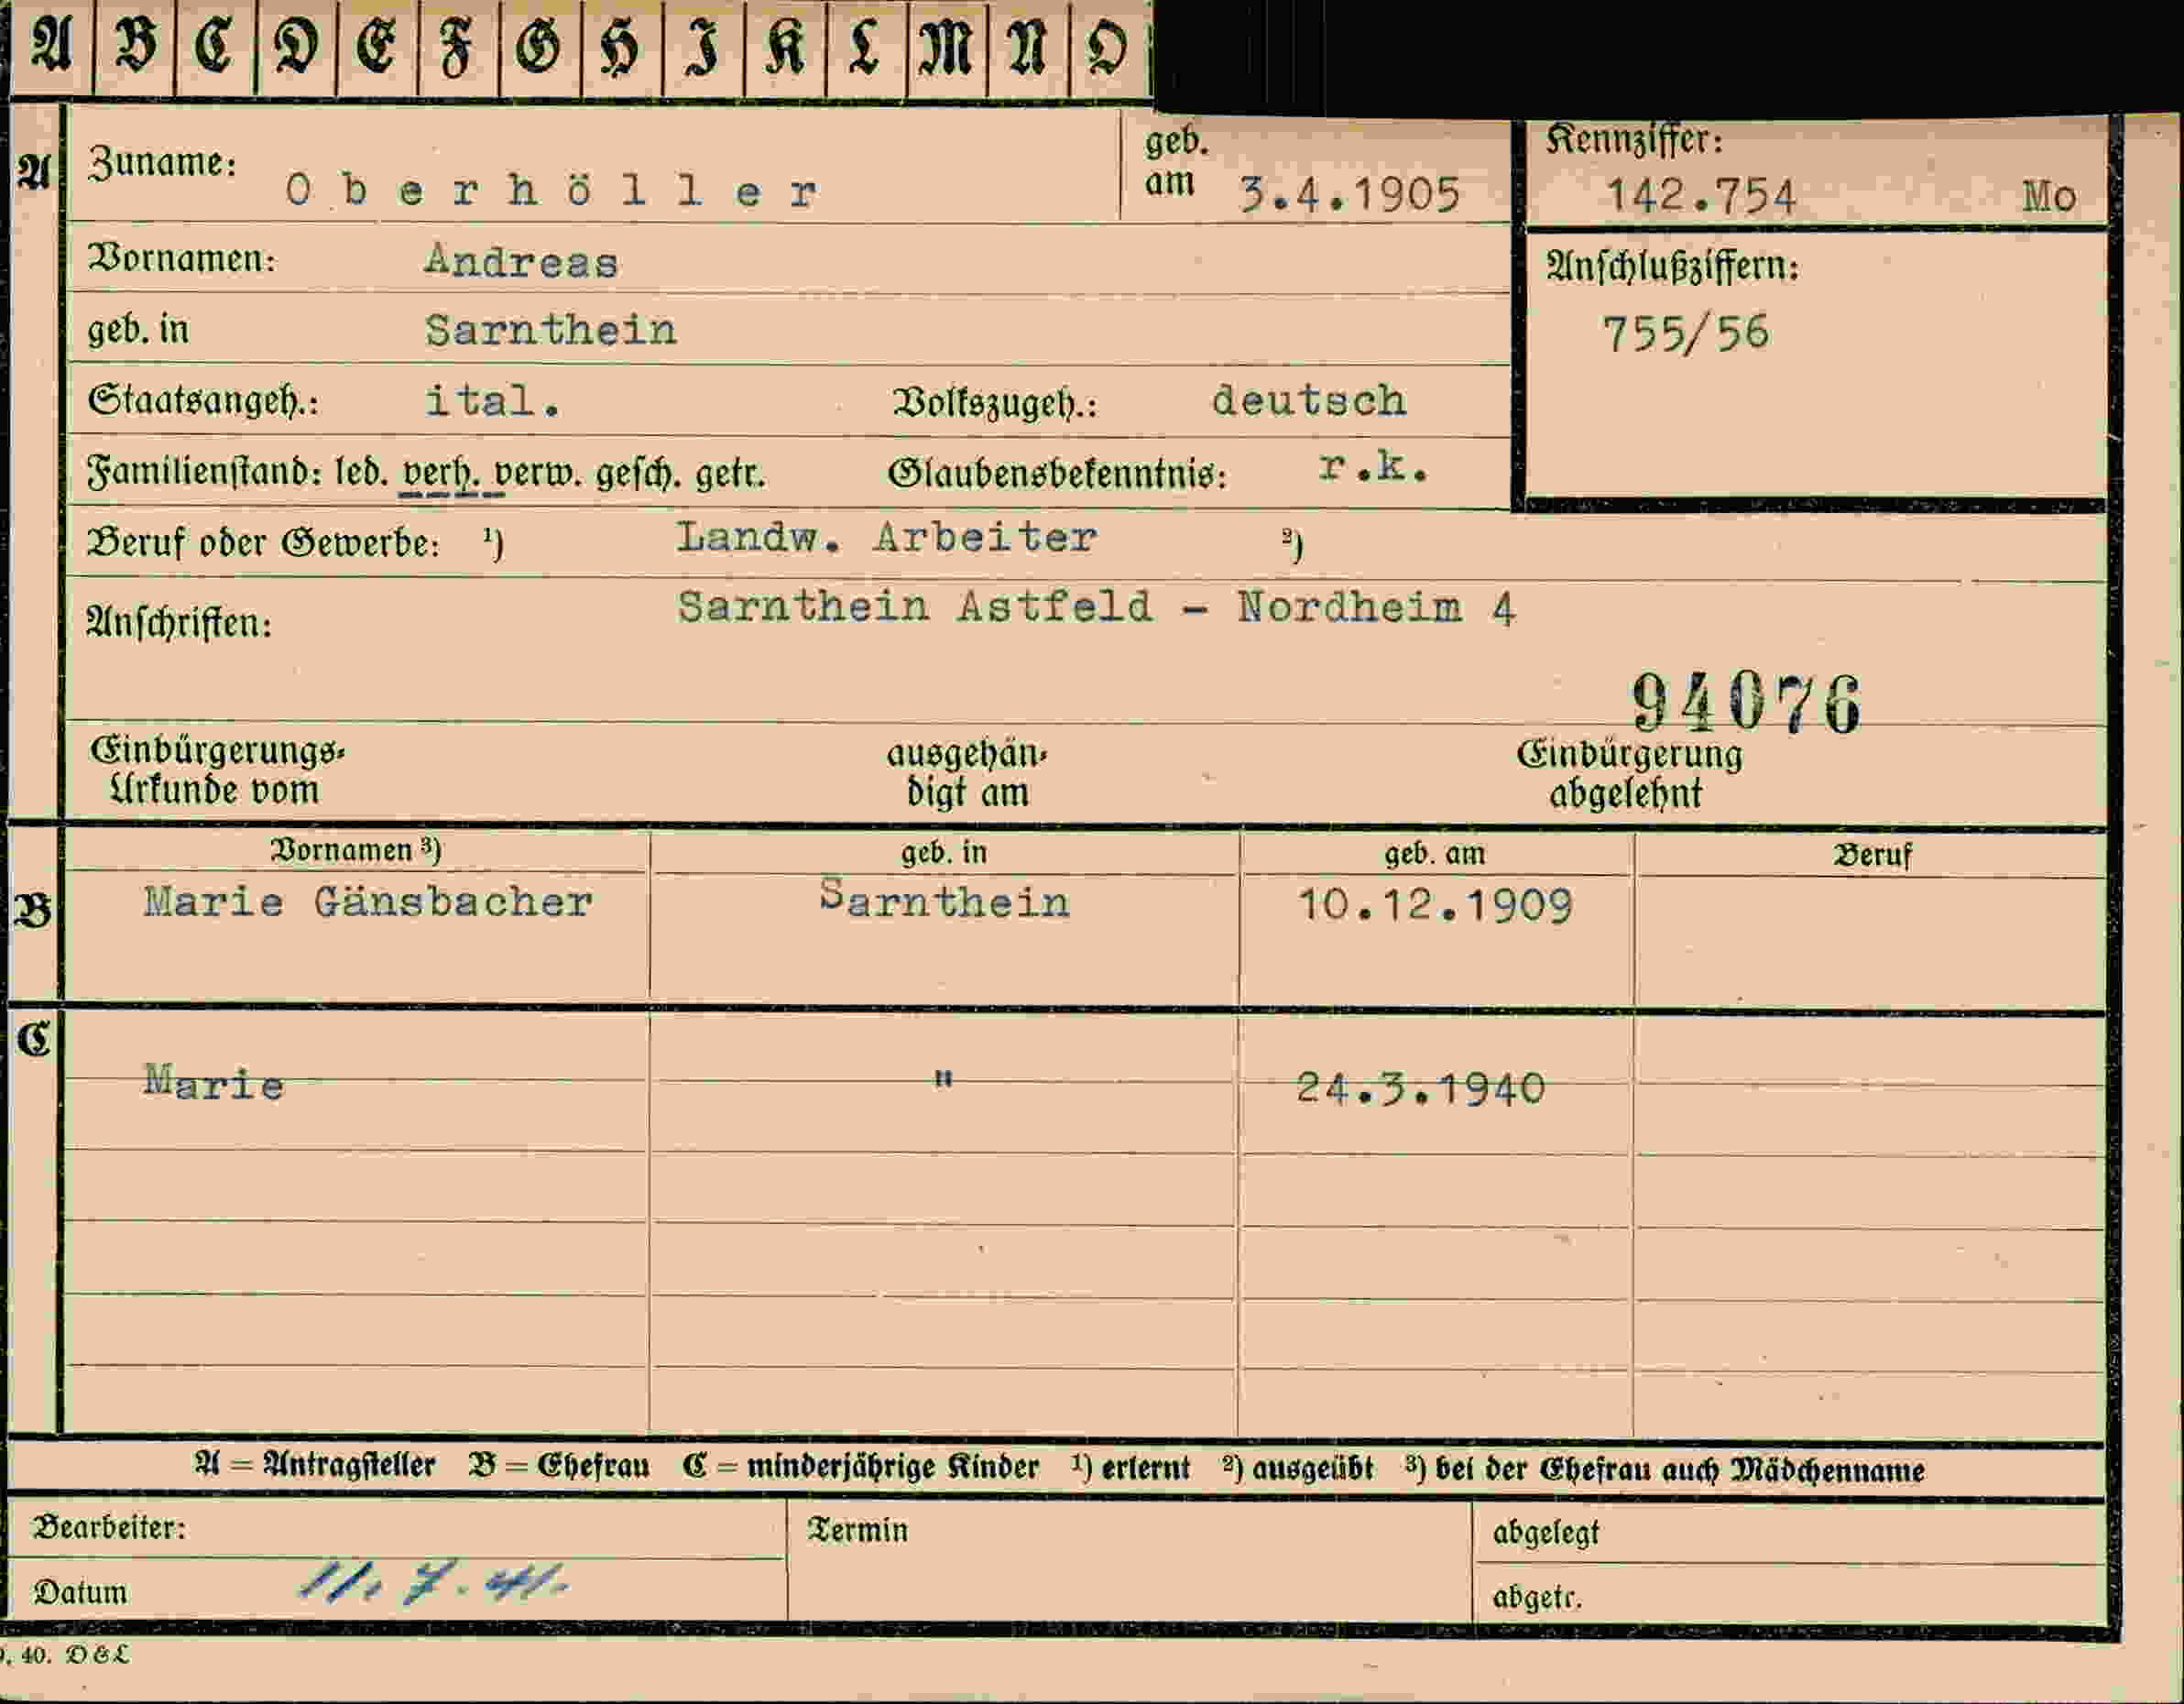 A B C D E F G H I K L M N O
A
Zuname: Oberhöller
geb. am 3.4.1905
Kennziffer:
142.754 Mo
Vornamen: Andreas
Anschlußziffern:
755/56
geb. in Sarnthein
Staatsangeh.: ital. Volkszugeh.: deutsch
Familienstand: led. verh. verw. gesch. getr. Glaubensbekenntnis: r.k.
Beruf oder Gewerbe: 1) Landw. Arbeiter 2)
Anschriften: Sarnthein Astfeld - Nordheim 4
94076
Einbürgerungs- ausgehän- Einbürgerung
Urkunde vom digt am abgelehnt
Vornamen 3) geb. in geb. am Beruf
B Marie Gänsbacher Sarnthein 10.12.1909
C
Marie " 24.3.1940
A = Antragsteller B = Ehefrau C = minderjährige Kinder 1) erlernt 2) ausgeübt 3) bei der Ehefrau auch Mädchenname
Bearbeiter: Termin abgelegt
Datum 11. 7. 41. abgetr.
40. D & L